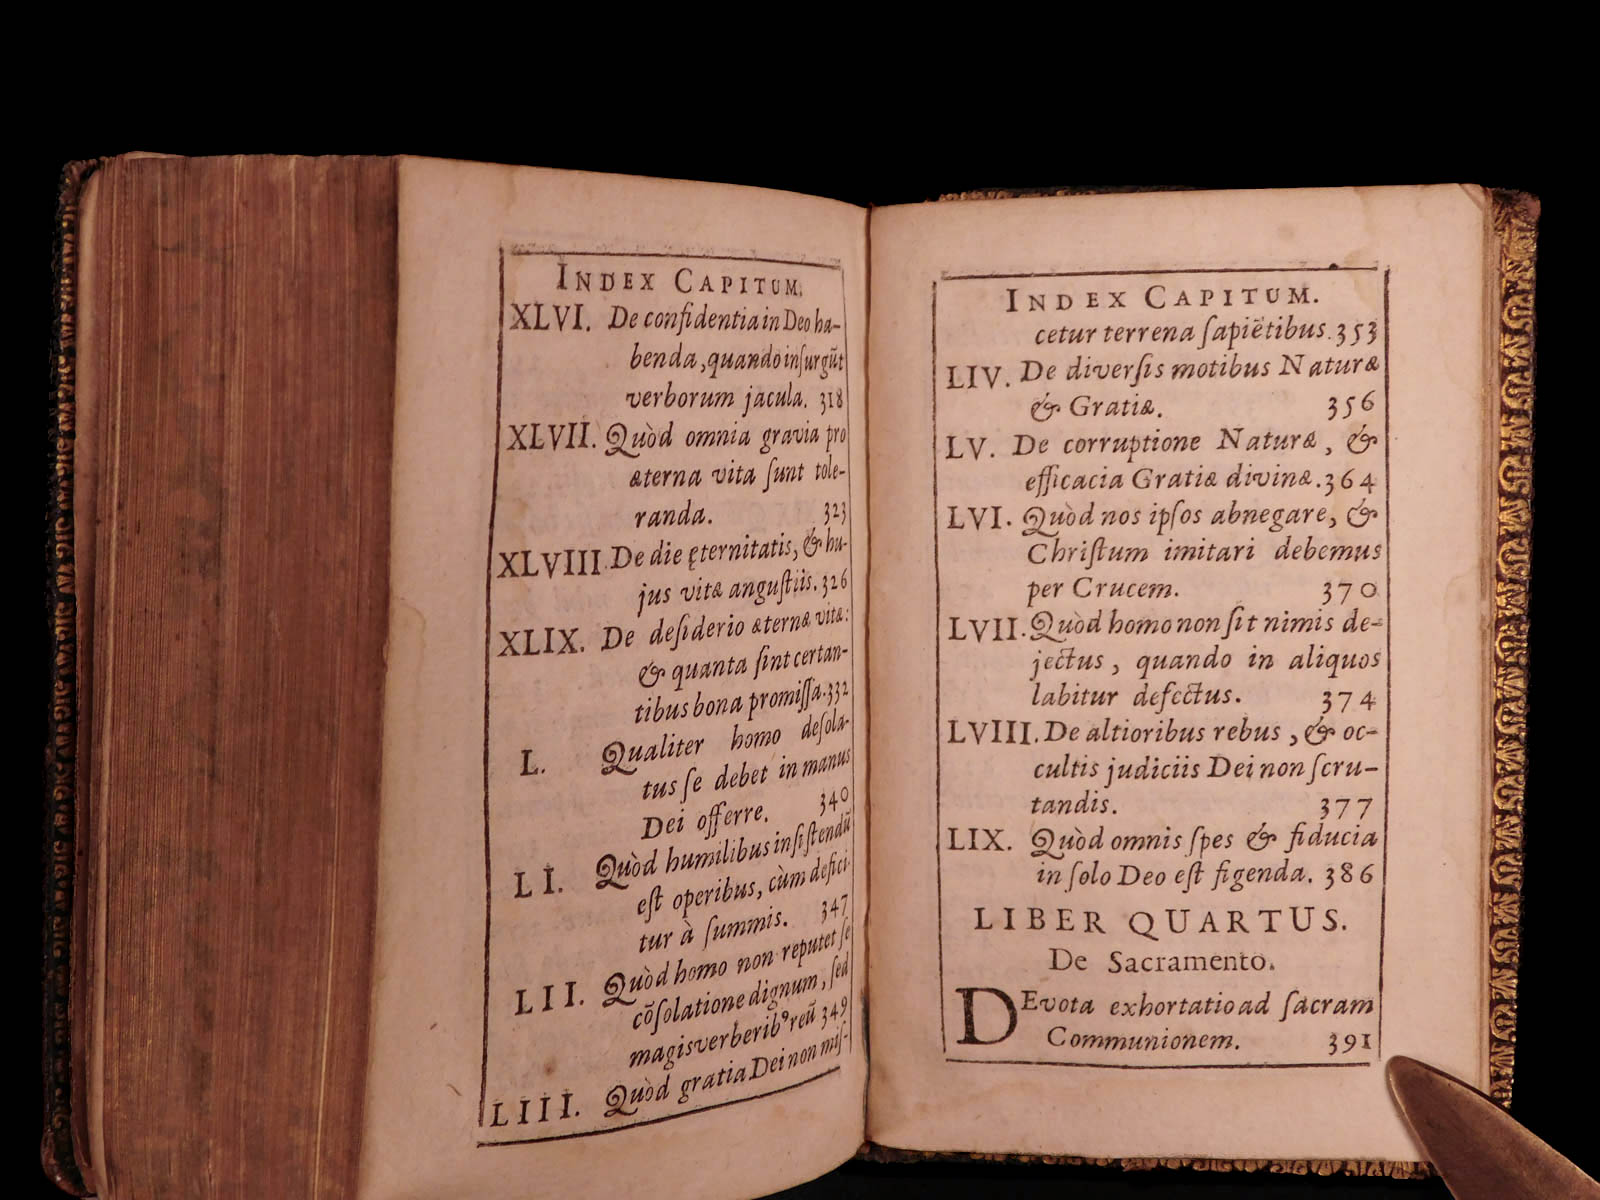 INDEX CAPITUM.
XLVI. De confidentia in Deo ha-
benda, quando insurgūt
verborum jacula. 318
XLVII. Quòd omnia gravia pro
æterna vita ſunt tole-
randa. 323
XLVIII. De die ęternitatis, & hu-
jus vitæ anguſtiis. 326
XLIX. De deſiderio æternæ vitæ:
& quanta ſint certan-
tibus bona promiſſa. 332
L. Qualiter homo deſola-
tus ſe debet in manus
Dei offerre. 340
LI. Quòd humilibus inſiſtendū
eſt operibus, cùm defici-
tur à ſummis. 347
LII. Quòd homo non reputet ſe
cōſolatione dignum, ſed
magis verberibꝰ reū 349
LIII. Quòd gratia Dei non miſ-
INDEX CAPITUM.
cetur terrena ſapiētibus. 353
LIV. De diverſis motibus Naturæ
& Gratiæ. 356
LV. De corruptione Naturæ, &
efficacia Gratiæ divinæ. 364
LVI. Quòd nos ipſos abnegare, &
Chriſtum imitari debemus
per Crucem. 370
LVII. Quòd homo non ſit nimis de-
jectus, quando in aliquos
labitur defectus. 374
LVIII. De altioribus rebus, & oc-
cultis judiciis Dei non ſcru-
tandis. 377
LIX. Quòd omnis ſpes & fiducia
in ſolo Deo eſt figenda. 386
LIBER QUARTUS.
De Sacramento.
DEvota exhortatio ad ſacram
Communionem. 391